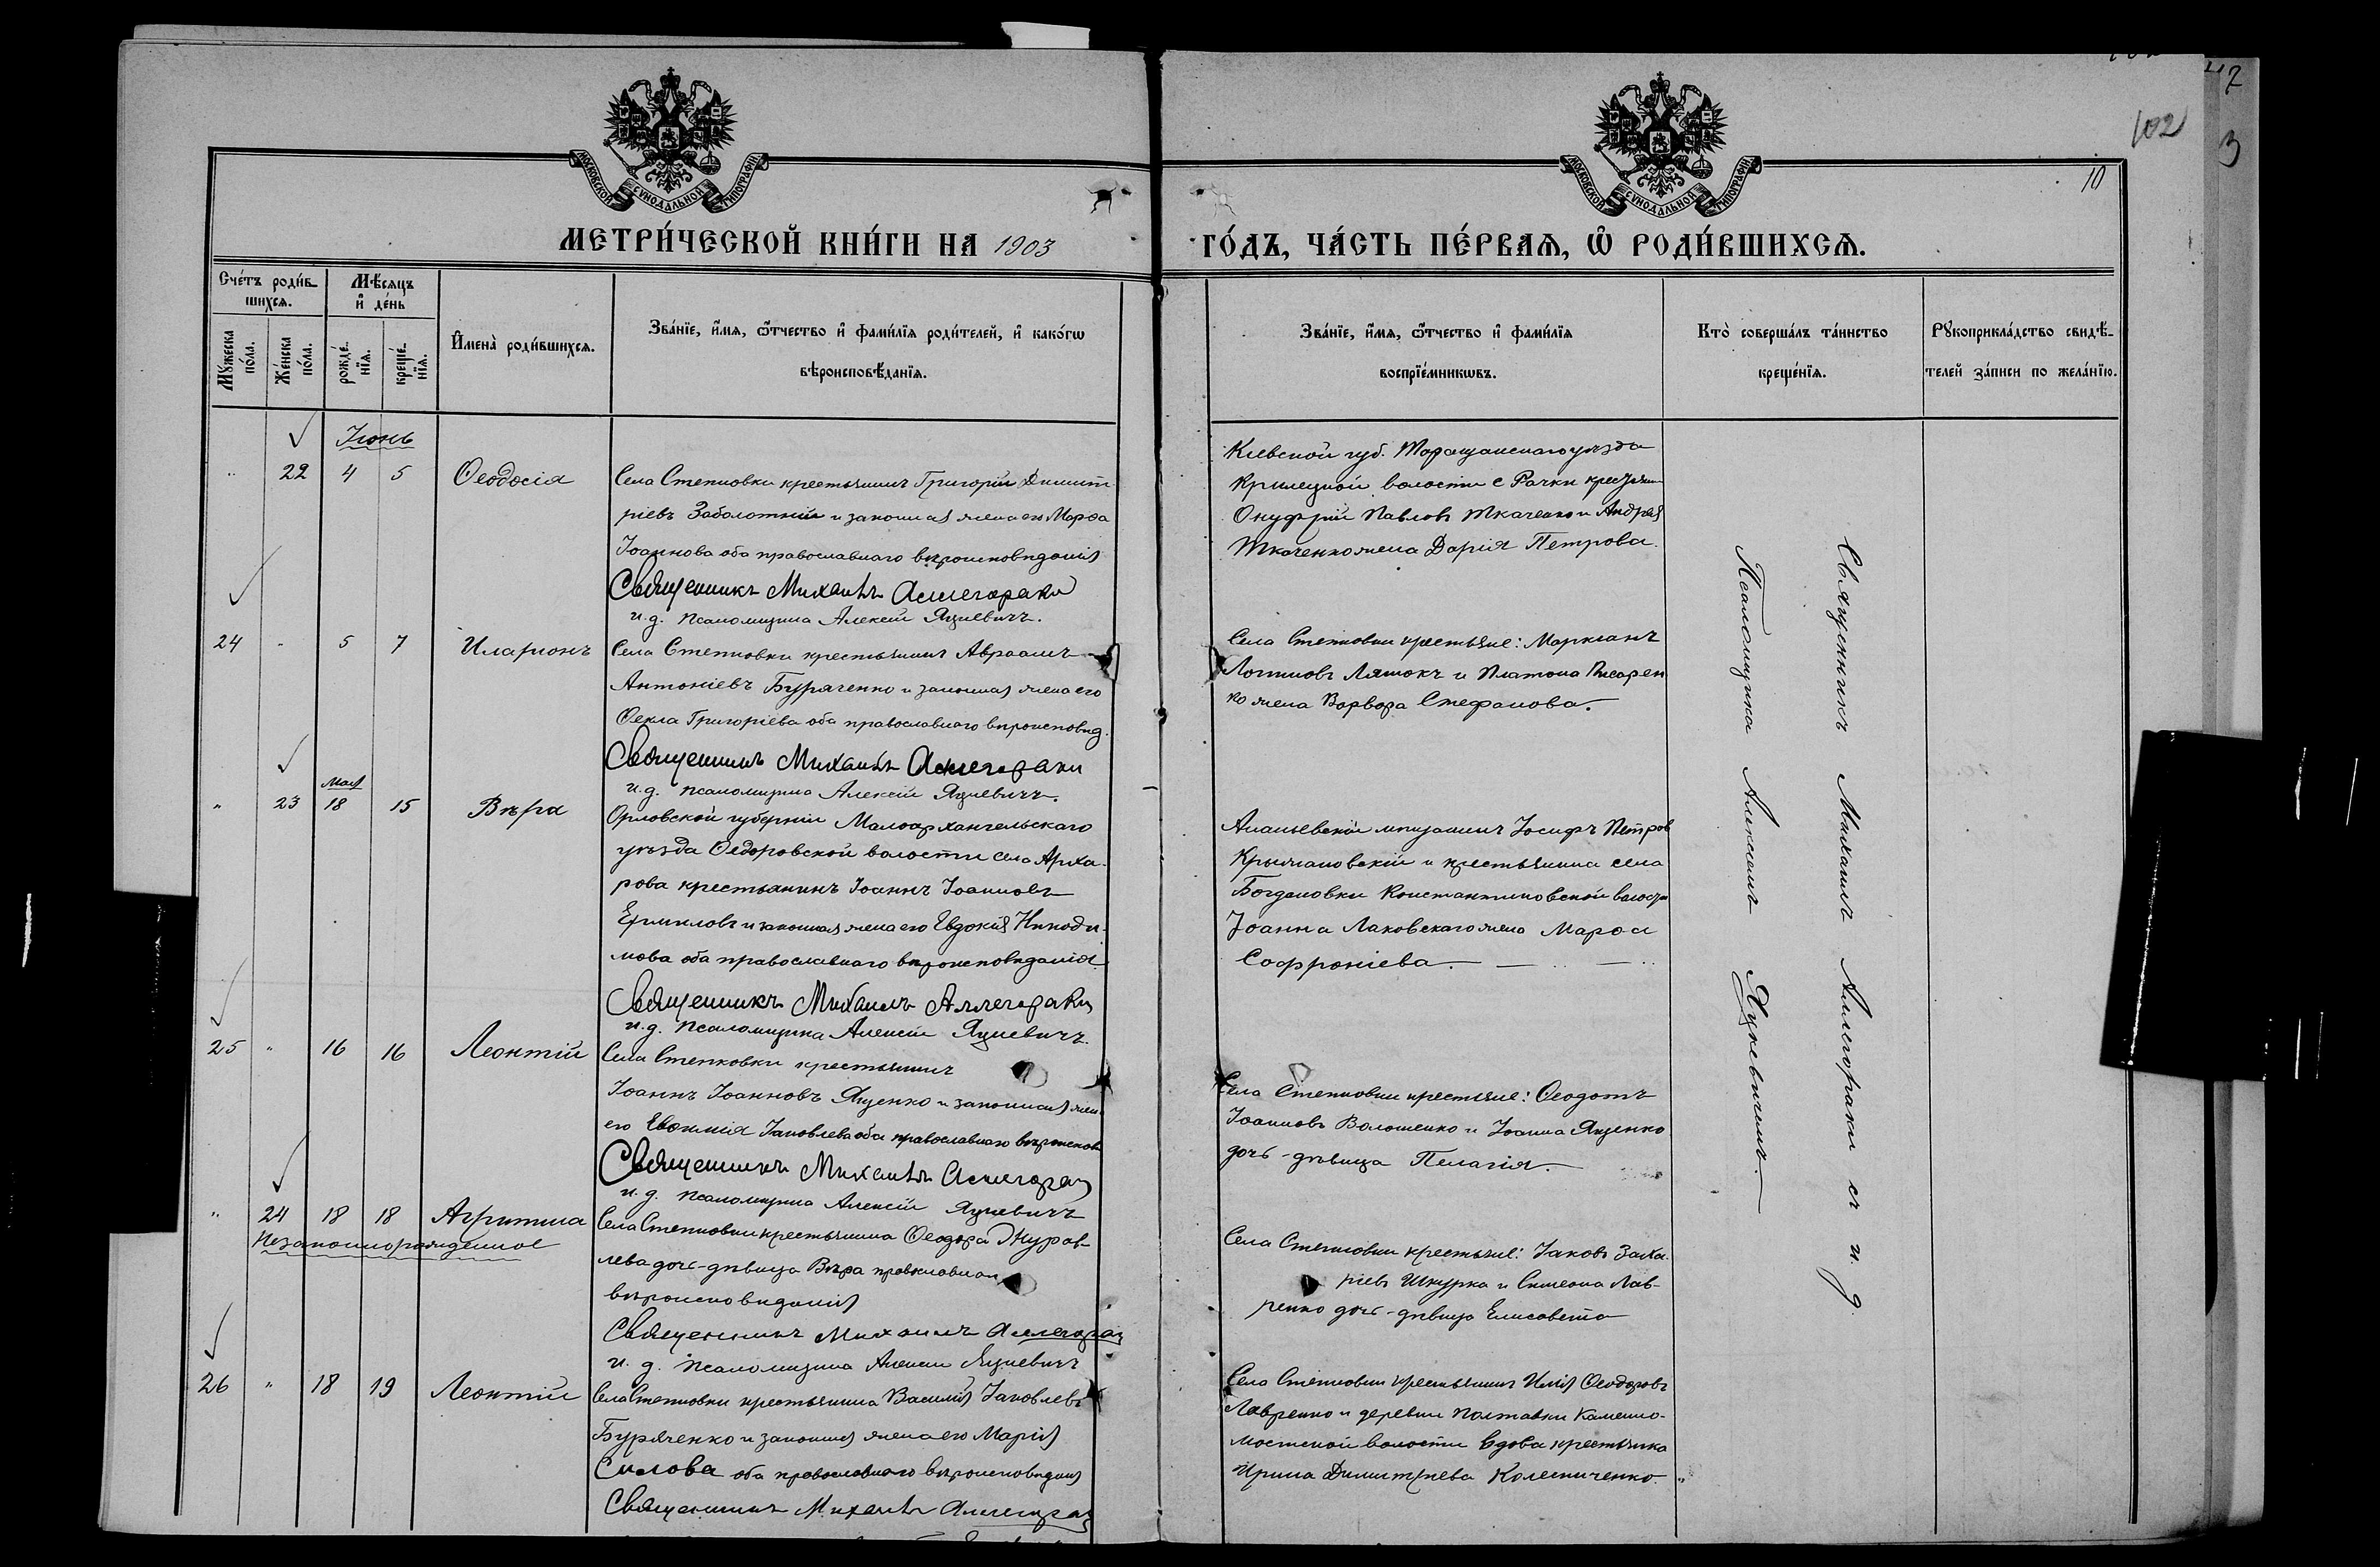 102
2
3
10
МОСКОВСКОЙ СѴНОДАЛЬНОЙ ТИПОГРАФІИ
МОСКОВСКОЙ СѴНОДАЛЬНОЙ ТИПОГРАФІИ
МЕТРИ́ЧЕСКОЙ КНИ́ГИ НА 1903
ГО́ДЪ, ЧА́СТЬ ПЕ́РВАЯ, Ѡ РОДИ́ВШИХСЯ.
Сче́тъ роди́в-
шихся.
Мѣ́сяцъ
и де́нь
Мꙋ́жеска
по́ла.
Же́нска
по́ла.
рожде́-
нїя.
креще́-
нїя.
Имена̀ роди́вшихся.
Зва́нїе, и́мя, ѻ́тчество и фами́лїя роди́телей, и како́гѡ
вѣроисповѣ́данїя.
Зва́нїе, и́мя, ѻ́тчество и фами́лїя
воспрїе́мникѡвъ.
Кто̀ соверша́лъ та́инство
креще́нїя.
Рꙋкоприкла́дство свидѣ́-
телей за́писи по жела́нїю.
Іюнь
" 22 4 5 Ѳеодосія
Села Степковки крестьянинъ Григорій Димит
ріевъ Заболотній и законная жена его Марѳа
Іоаннова оба православнаго вѣроисповѣданія
Священникъ Михаилъ Аллегораки
и. д. псаломщика Алексѣй Яцкевичъ.
Кіевской губ. Таращанскаго уѣзда
волости с Рачки крестьянин
Онуфрій Павловъ Ткаченко и Андрея
Ткаченко жена Дарія Петрова.
24 " 5 7 Иларіонъ
Села Степковки крестьянинъ Авраамъ
Антоніевъ Буряченко и законная жена его
Ѳекла Григоріева оба православнаго вѣроисповѣд.
Священникъ Михаилъ Аллегораки
и. д. псаломщика Алексѣй Яцкевичъ.
Села Степковки крестьяне: Маркіанъ
Логгиновъ Ляшокъ и Платона Писарен
ко жена Варвара Стефанова.
Мая
" 23 18 15 Вѣра
Орловской губерніи Малоархангельскаго
уѣзда Ѳедоровской волости села Арха-
рова крестьянинъ Іоаннъ Іоанновъ
Ермиловъ и законная жена его Евдокія Никоди-
мова оба православнаго вѣроисповѣданія.
Священникъ Михаилъ Аллегораки
и. д. псаломщика Алексѣй Яцкевичъ.
Ананьевскій мѣщанинъ Іосифъ Петров
Крыжановскій и крестьянина села
Богдановки Константиновской волости
Іоанна Лаковскаго жена Марѳа
Софроніева.
25 " 16 16 Леонтій
Села Степковки крестьянинъ
Іоаннъ Іоанновъ Яценко и законная жена
его Евѳимія Іаковлева оба православнаго вѣроиспов
Священникъ Михаилъ Аллегораки
и. д. псаломщика Алексѣй Яцкевичъ
Села Степковки крестьяне: Ѳеодотъ
Іоанновъ Волошенко и Іоанна Яценко
дочь-дѣвица Пелагія.
" 24 18 18 Агрипина
Незаконнорожденное
Села Степковки крестьянина Ѳеодора Журав-
лева дочь-дѣвица Вѣра православнаго
вѣроисповѣданія
Священникъ Михаилъ Аллегораки
и. д. псаломщика Алексѣй Яцкевичъ
Села Степковки крестьяне: Іаковъ Заха-
ріевъ Шкурка и Симеона Лав-
ренко дочь-дѣвица Елисавета
26 " 18 19 Леонтій
Села Степковки крестьянина Василій Іаковлевъ
Буряченко и законная жена его Марія
Силова оба православнаго вѣроисповѣданія
Священникъ Михаилъ Аллегораки
Села Степковки крестьянинъ Илія Ѳеодоровъ
Лавренко и деревни Полтавки Каменно-
мостской волости вдова крестьянка
Ирина Димитріева Колесниченко. "
Священникъ Михаилъ Аллегораки съ и. д.
Псаломщика Алексѣемъ Яцкевичемъ.